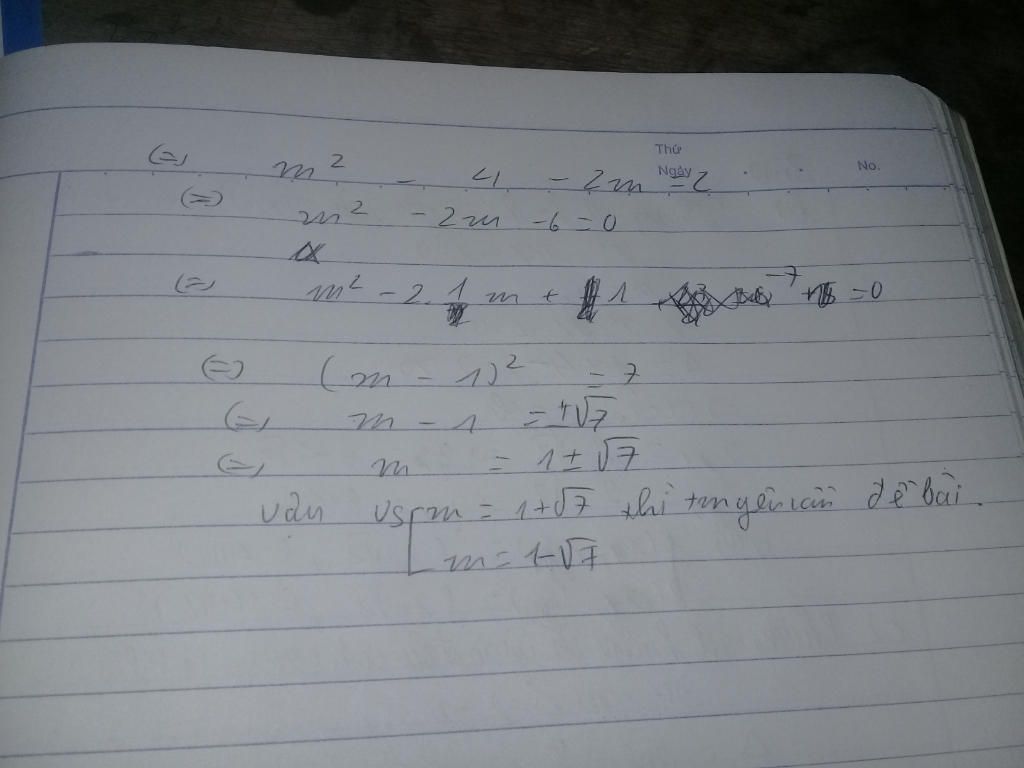 Thứ
Ngày No.
(=) m² - 4 - 2m = 2
(=) m² - 2m - 6 = 0
(=) m² - 2. 1 m + 1 - 7 = 0
(=) (m - 1)² = 7
(=) m - 1 = ±√7
(=) m = 1 ± √7
vậy vs [ m = 1+√7 thì tm yêu cầu đề bài.
m = 1-√7